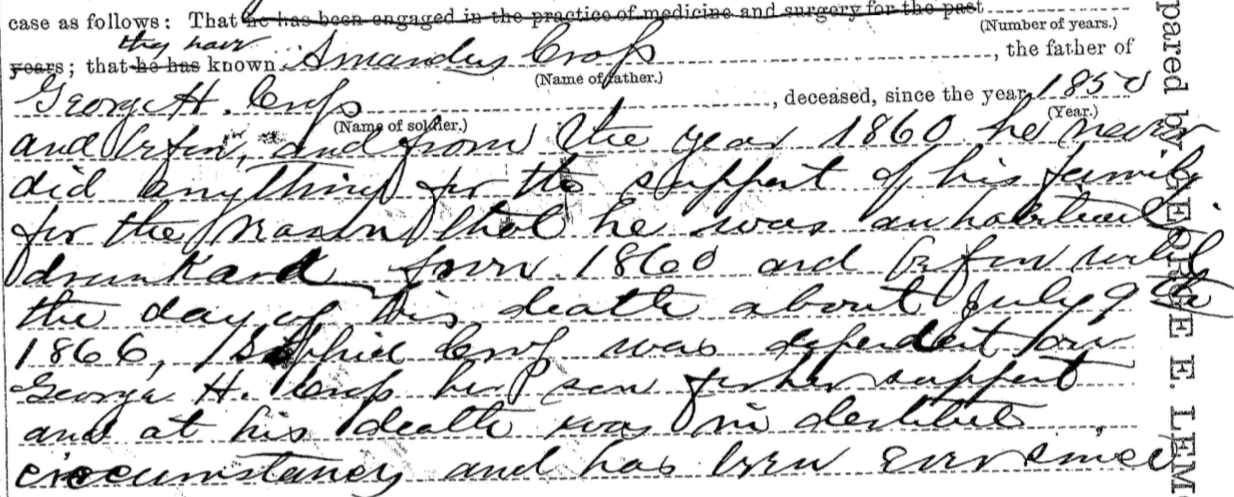 case as follows: That he has been engaged in the practice of medicine and surgery for the past
(Number of years.)
they have
years; that he has known Amandus Cross, the father of
(Name of father.)
George H. Cross, deceased, since the year 1850
(Name of soldier.) (Year.)
and before, and from the year 1860 he never
did anything for the support of his family
for the reason that he was an habitual
drunkard from 1860 and before until
the day of his death about July 9th
1866, Sophia Cross was dependent on
George H. Cross her son for her support
and at his death was in destitute
circumstances and has been ever since
pared by GEORGE E. LEM